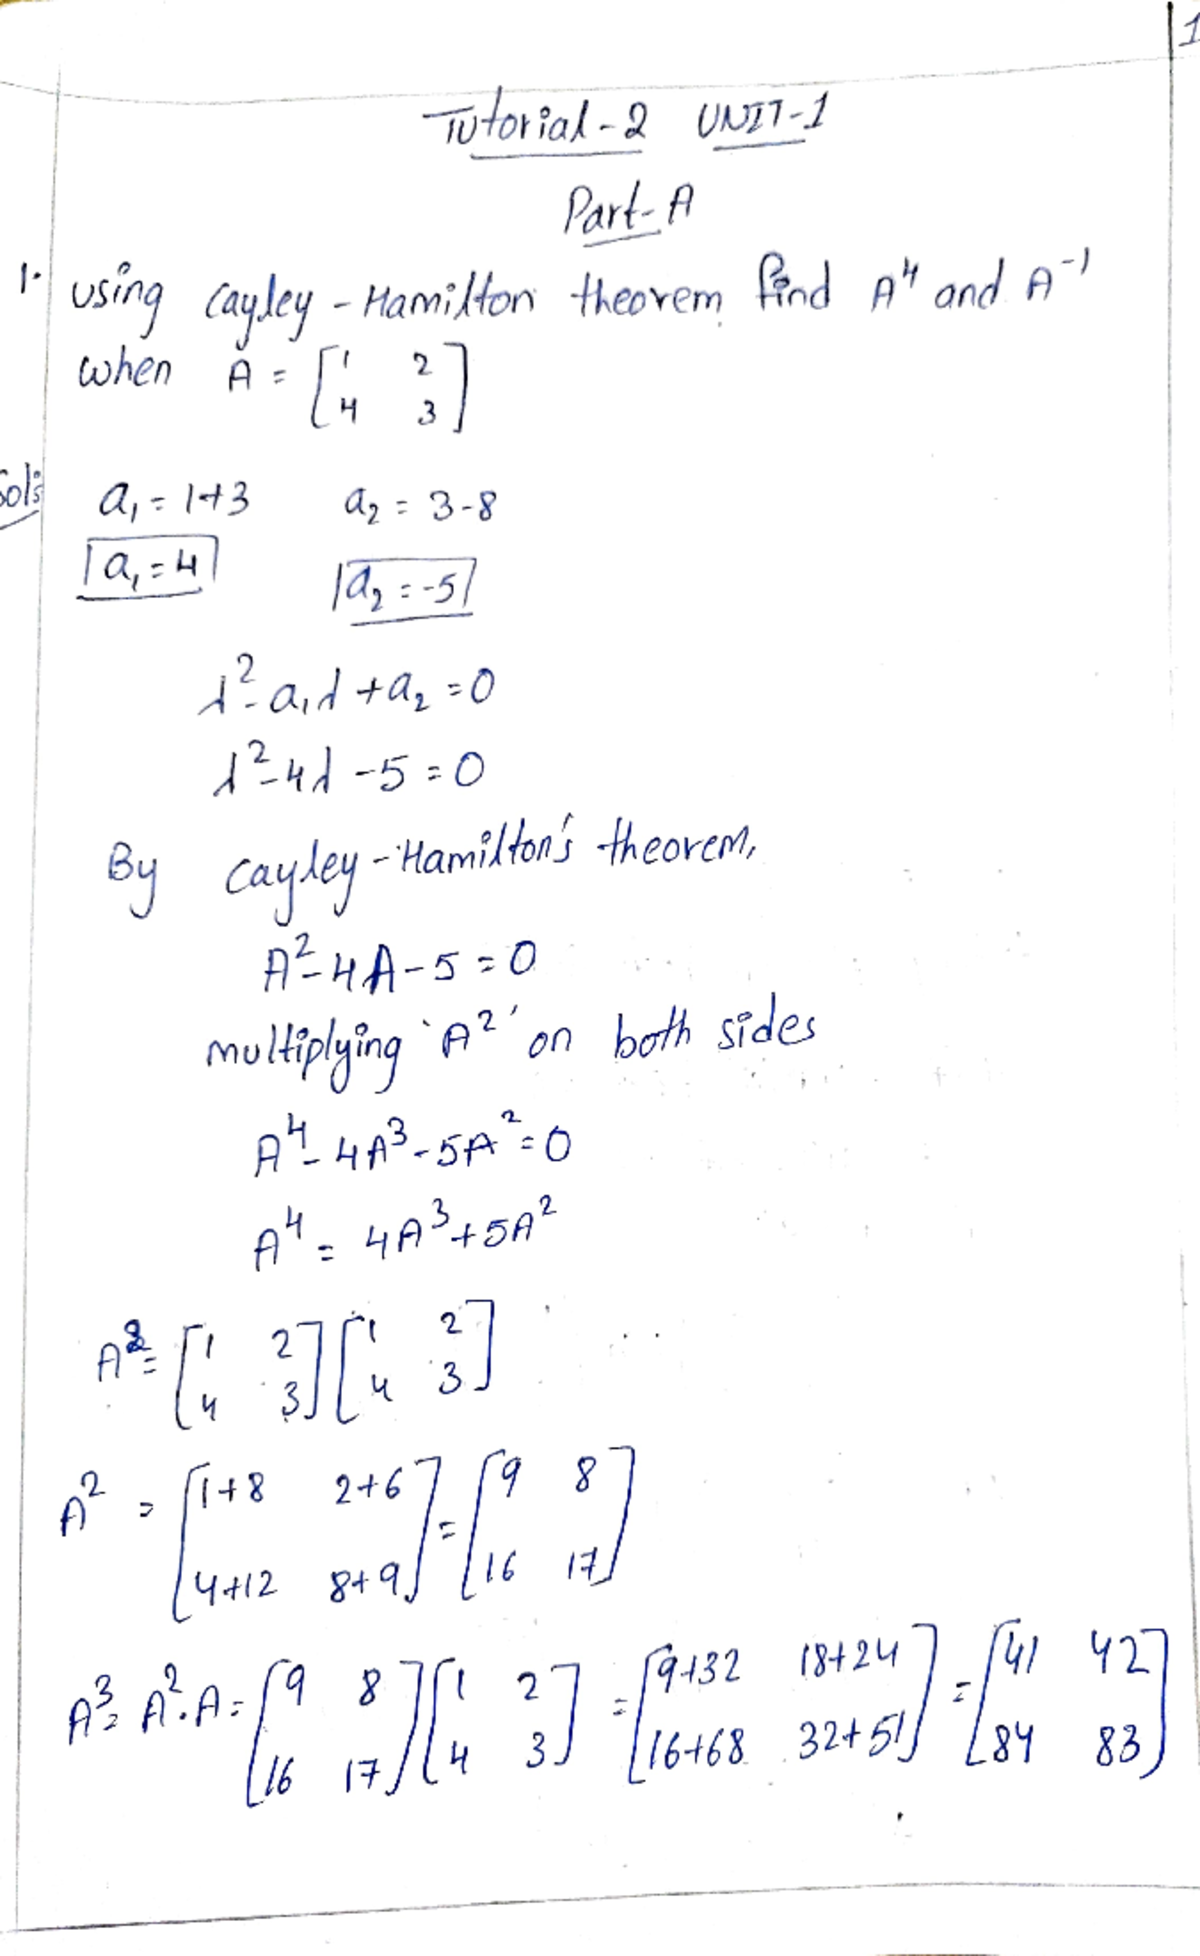 1
Tutorial-2 UNIT-1
Part-A
1. using Cayley-Hamilton theorem find A⁴ and A⁻¹
when A = [1 2
4 3]
Sol:
a₁ = 1+3 a₂ = 3-8
a₁ = 4 a₂ = -5
λ² - a₁λ + a₂ = 0
λ² - 4λ - 5 = 0
By Cayley-Hamilton's theorem,
A² - 4A - 5 = 0
multiplying 'A²' on both sides
A⁴ - 4A³ - 5A² = 0
A⁴ = 4A³ + 5A²
A² = [1 2 [1 2
4 3] 4 3]
A² = [1+8 2+6 = [9 8
4+12 8+9] 16 17]
A³ = A².A = [9 8 [1 2 = [9+32 18+24 = [41 42
16 17] 4 3] 16+68 32+51] 84 83]